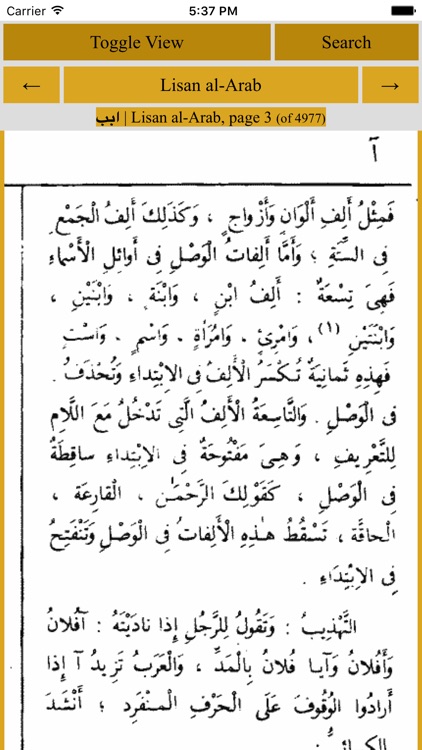 Carrier 5:37 PM
Toggle View Search
← Lisan al-Arab →
ابب | Lisan al-Arab, page 3 (of 4977)
آ
فَمِثْلُ أَلِفِ أَلْوَانٍ وَأَزْواجٍ ، وَكَذَلِكَ أَلِفُ الْجَمْعِ
فِى السِّتَّةِ ؛ وَأَمَّا أَلِفاتُ الْوَصْلِ فِى أَوائِلِ الْأَسْماءِ
فَهِىَ تِسْعَةٌ : أَلِفُ ابْنٍ ، وَابْنَةٍ ، وَابْنَيْنِ ،
وَابْنَتَيْنِ (١) ، وَامْرِئٍ . وَامْرَأَةٍ . وَاسْمٍ . وَاسْتٍ
فَهٰذِهِ ثَمانِيَةٌ تُكْسَرُ الْأَلِفُ فِى الاِبْتِداءِ وَتُحْذَفُ .
فِى الْوَصْلِ . وَالتَّاسِعَةُ الْأَلِفُ الَّتِى تَدْخُلُ مَعَ اللَّامِ
لِلتَّعْرِيفِ ، وَهِىَ مَفْتُوحَةٌ فِى الاِبْتِداءِ ساقِطَةٌ
فِى الْوَصْلِ ، كَقَوْلِكَ الرَّحْمٰن ، الْقارِعَة ،
الْحاقَّة ، تَسْقُطُ هٰذِهِ الْأَلِفاتُ فِى الْوَصْلِ وَتَنْفَتِحُ
فِى الاِبْتِداءِ .
التَّهْذِيبُ : وَتَقُولُ لِلرَّجُلِ إِذا نادَيْتَهُ : آفُلانُ
وَأَفُلانُ وَآيا فُلانُ بِالْمَدِّ ، وَالْعَرَبُ تَزِيدُ آ إِذا
أَرادُوا الْوُقُوفَ عَلَى الْحَرْفِ الْمُنْفَرِدِ ؛ أَنْشَدَ